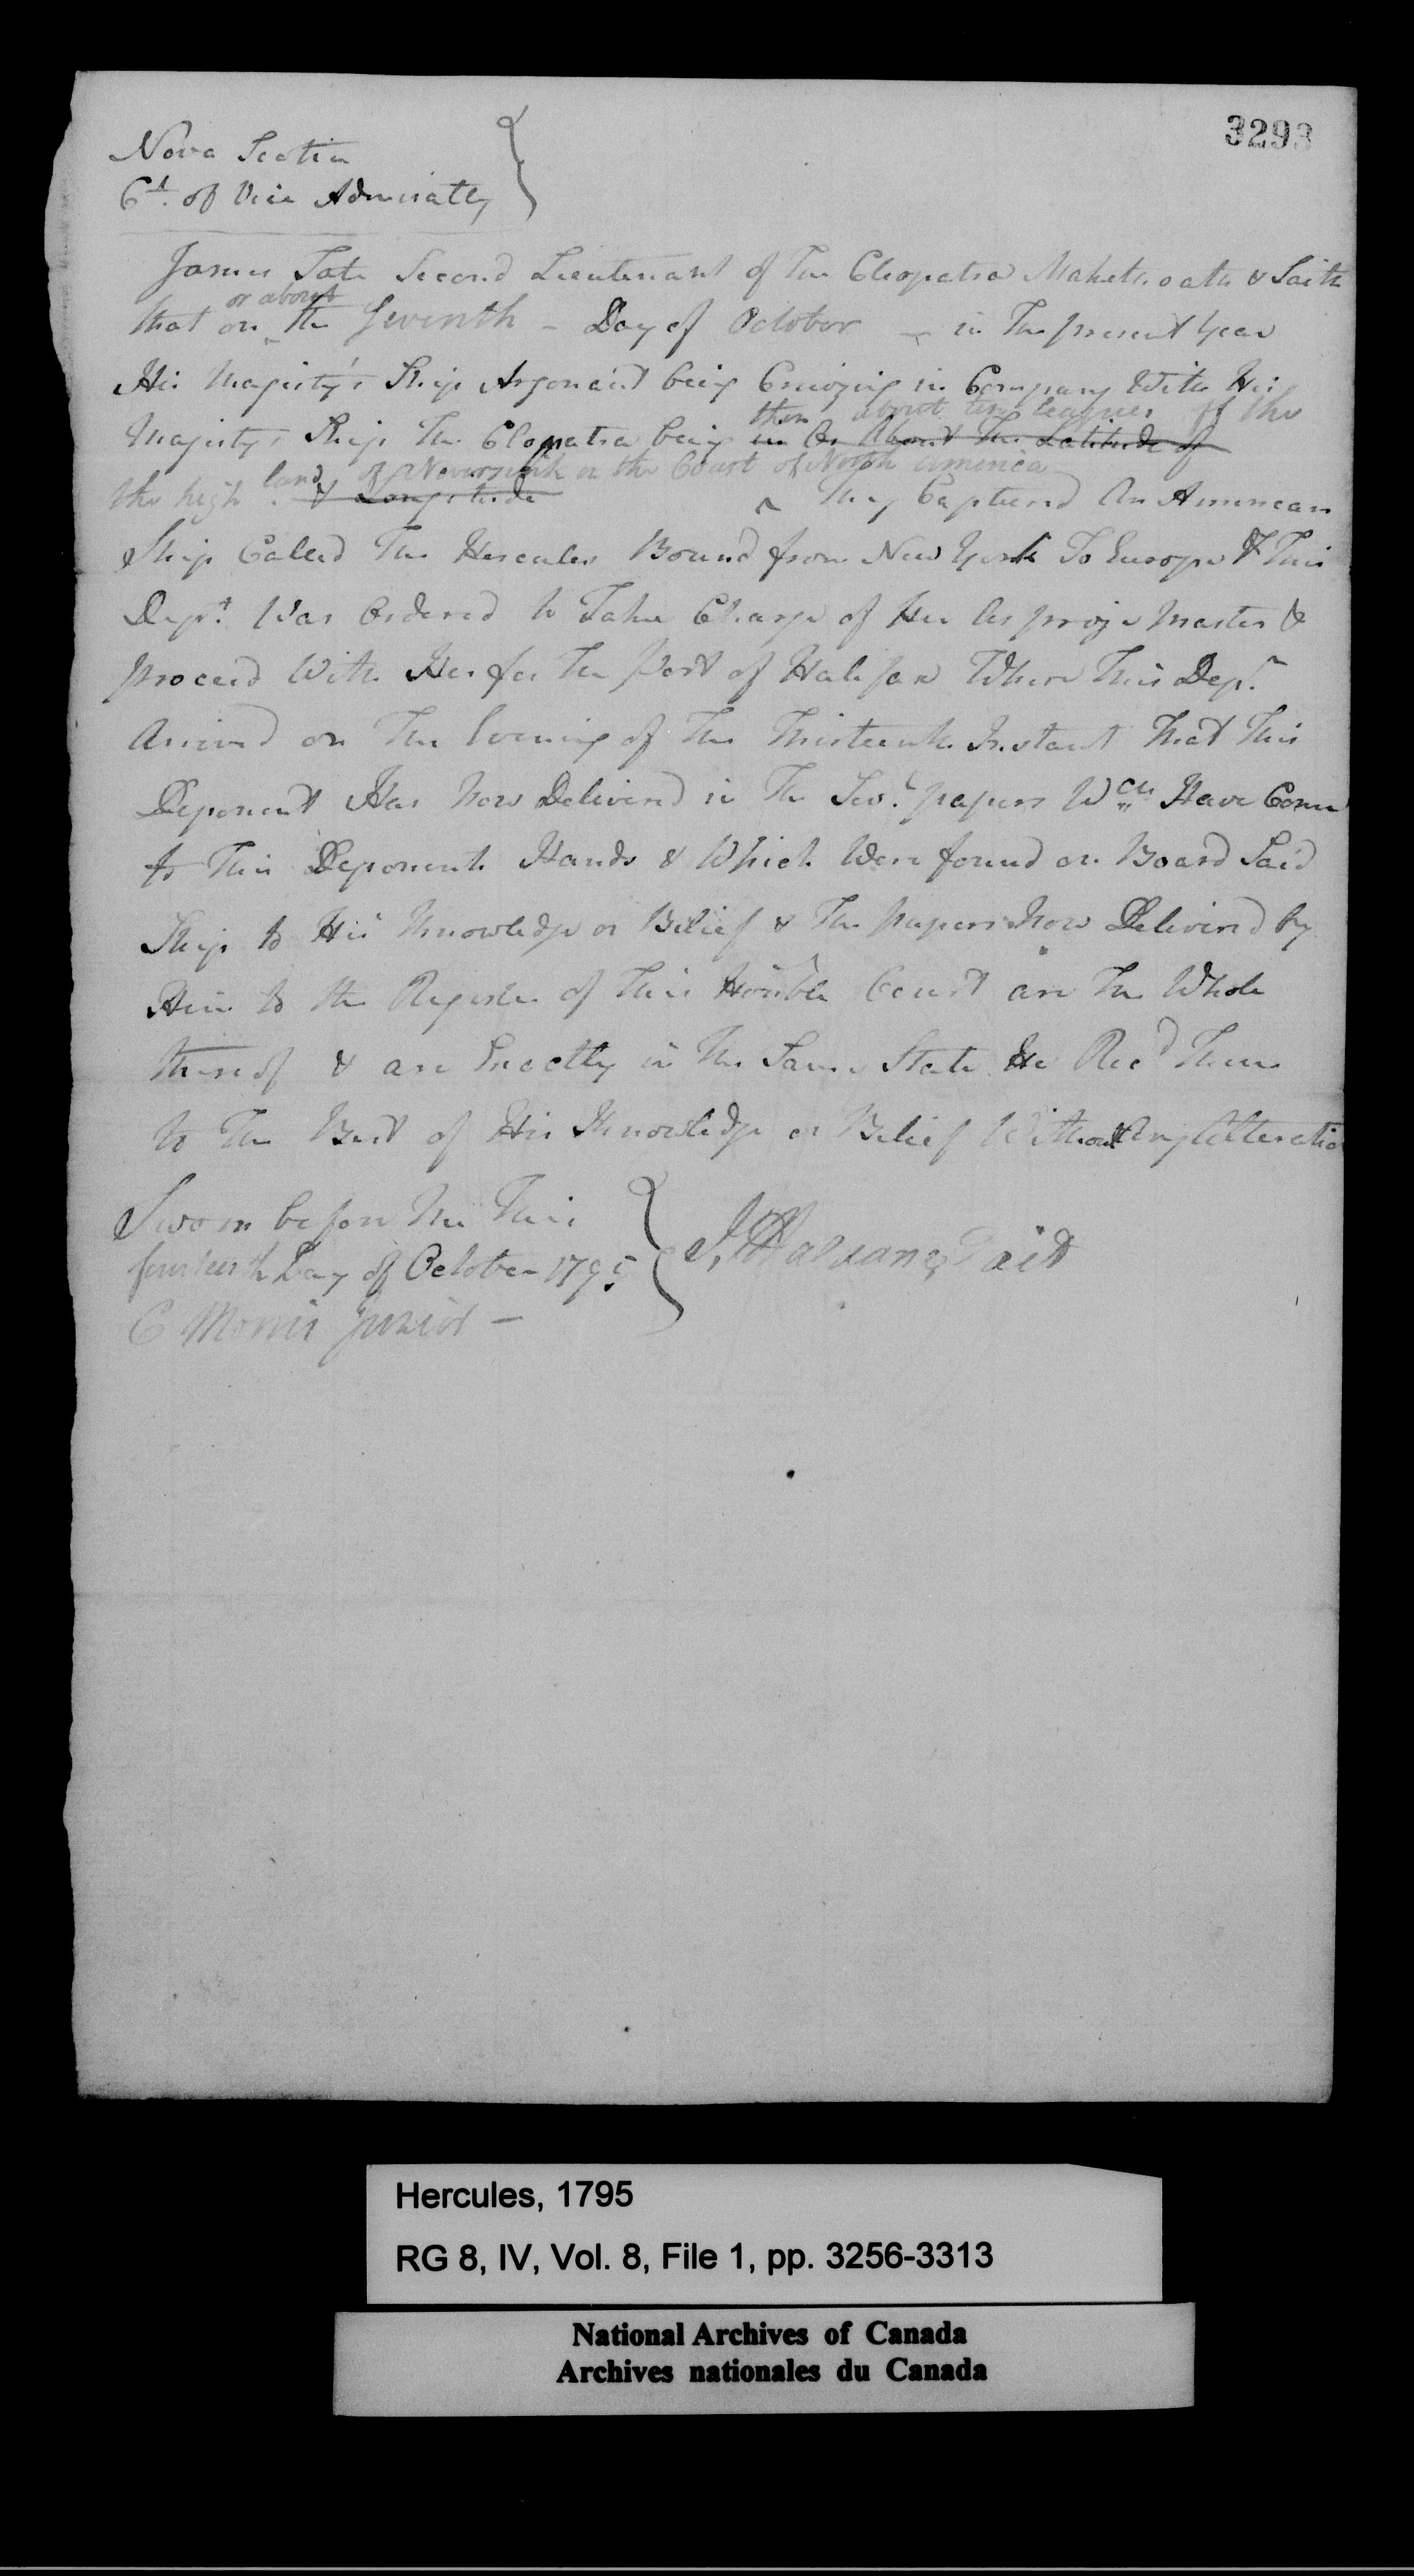 3293
Nova Scotia
Ct. of Vice Admiralty
James Tate Second Lieutenant of The Cleopatra Maketh oath & Saith
or about
that on the Seventh - Day of October - in The present Year
His Majesty's Ship Argonaut being Cruizing in Company With His
then about ten leagues off the
Majesty's Ship The Clopatra being in Or About The Latitude of
land of Neversink on the Coast of North America
the high & Longitude They Captured An American
Ship Called The Hercules Bound from New York To Europe & This
Dept. Was Ordered to Take Charge of Her As prize Master &
proceed With Her for The Port of Halifax Where This Dept.
Arrived on The Evening of The Thirteenth Instant That This
Deponent Has Now Delivered in The Sevl. papers Wch Have Come
to This Deponents Hands & Which Were found on Board Said
Ship to His Knowledge or Belief & The papers Now Delivered by
Him to the Register of This Honble Court are The Whole
thereof & are Exactly in The Same State He Recd Them
to The Best of His Knowledge or Belief Without Any Alteratio
Sworn before Me This
fourteenth Day of October 1795
C Morris Junior -
Tait
Hercules, 1795
RG 8, IV, Vol. 8, File 1, pp. 3256-3313
National Archives of Canada
Archives nationales du Canada